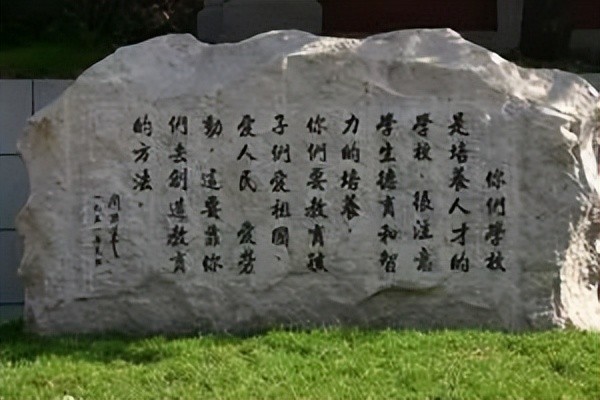 你們學校
是培養人才的
學校，很注意
學生德育和智
力的培養，
你們要教育孩
子們愛祖國、
愛人民 愛勞
動，這要靠你
們去創造教育
的方法。